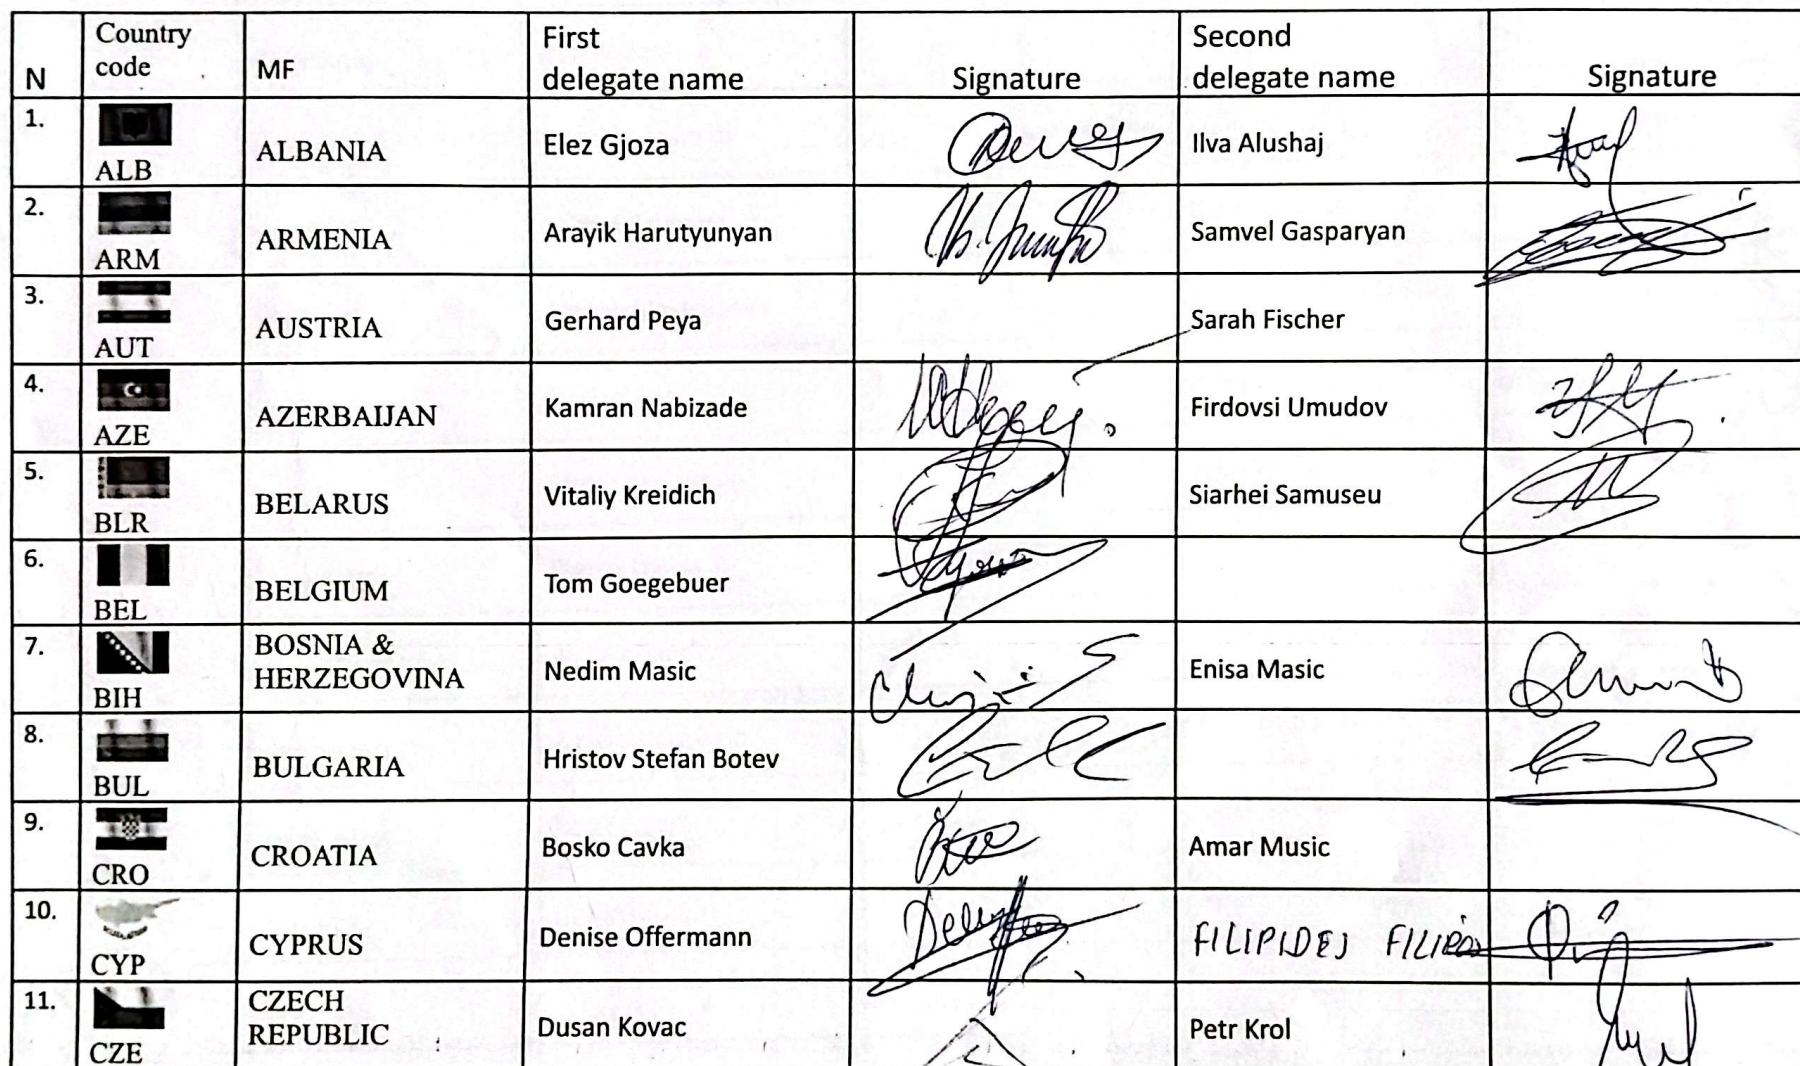 N Country code MF First delegate name Signature Second delegate name Signature
1. ALB ALBANIA Elez Gjoza Ilva Alushaj
2. ARM ARMENIA Arayik Harutyunyan Samvel Gasparyan
3. AUT AUSTRIA Gerhard Peya Sarah Fischer
4. AZE AZERBAIJAN Kamran Nabizade Firdovsi Umudov
5. BLR BELARUS Vitaliy Kreidich Siarhei Samuseu
6. BEL BELGIUM Tom Goegebuer
7. BIH BOSNIA & HERZEGOVINA Nedim Masic Enisa Masic
8. BUL BULGARIA Hristov Stefan Botev
9. CRO CROATIA Bosko Cavka Amar Music
10. CYP CYPRUS Denise Offermann FILIPIDES
11. CZE CZECH REPUBLIC Dusan Kovac Petr Krol